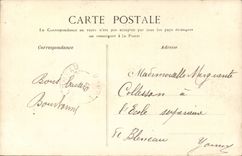 CARTE POSTALE
La Correspondance au recto n'est pas acceptée par tous les pays étrangers
se renseigner à la Poste
Correspondance
Adresse
Mademoiselle Marguerite
à
l'Ecole supérieure
de Bléneau
Yonne